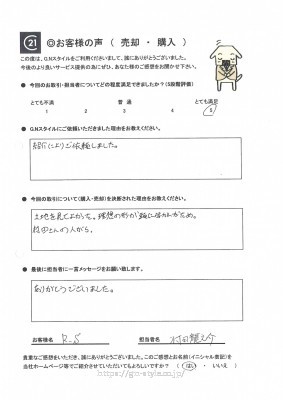 21 ◎お客様の声 ( 売却 ・ 購入 )
この度は、G.Nスタイルをご利用くださいまして、誠にありがとうございました。
今後のより良いサービス提供の為にぜひ、あなた様のご感想をお聞かせ下さい。
● 今回のお取引・担当者についてどの程度満足できましたか?(5段階評価)
とても不満 普 通 とても満足
1 2 3 4 5
● G.Nスタイルにご依頼いただきました理由をお教えください。
紹介によりご依頼しました。
● 今回のお取引について(購入・売却)を決断された理由をお教えください。
土地を見てよかった。理想の形が
村田さんの人がら。
● 最後に担当者に一言メッセージをお願い致します。
ありがとうございました。
お客様名 R.S 担当者名 村田
貴重なご感想をいただき、誠にありがとうございました。このご感想とお名前(イニシャル表記)を
当社ホームページ等でご紹介させていただいてもよろしいですか? ( はい ・ いいえ )
https://gn-style.co.jp/